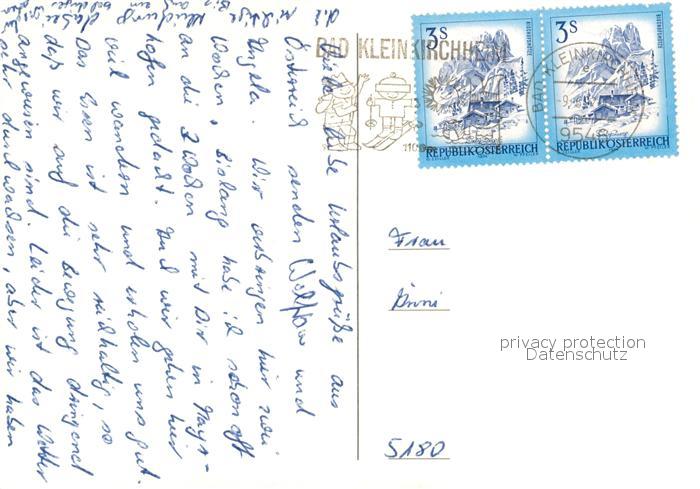 BAD KLEINKIRCHHEIM
3S
REPUBLIK ÖSTERREICH
3S
REPUBLIK ÖSTERREICH
BAD KLEINKIRCHHEIM
9546
Liebe Urlaubsgrüße aus
Österreich senden Wolfgang und
Angela. Wir verbringen hier zwei
Wochen. Bislang habe ich schon oft
an die 3 Wochen mit Dir in Mays-
hofen gedacht. Auch wir gehen hier
viel wandern und erholen uns gut.
Das Essen ist sehr reichhaltig, so
daß wir auf die Bewegung dringend
angewiesen sind. Leider ist das Wetter
sehr durchwachsen, aber wir haben
d. richtige
Kleidung
dabei.
Frau
Änni
5180
privacy protection
Datenschutz